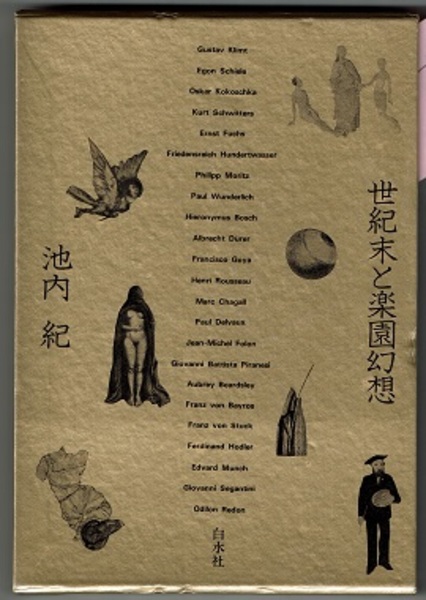 世紀末と楽園幻想
池内 紀
Gustav Klimt
Egon Schiele
Oskar Kokoschka
Kurt Schwitters
Ernst Fuchs
Friedensreich Hundertwasser
Philipp Moritz
Paul Wunderlich
Hieronymus Bosch
Albrecht Dürer
Francisco Goya
Henri Rousseau
Marc Chagall
Paul Delvaux
Jean-Michel Folon
Giovanni Battista Piranesi
Aubrey Beardsley
Franz von Bayros
Franz von Stuck
Ferdinand Hodler
Edvard Munch
Giovanni Segantini
Odilon Redon
白水社